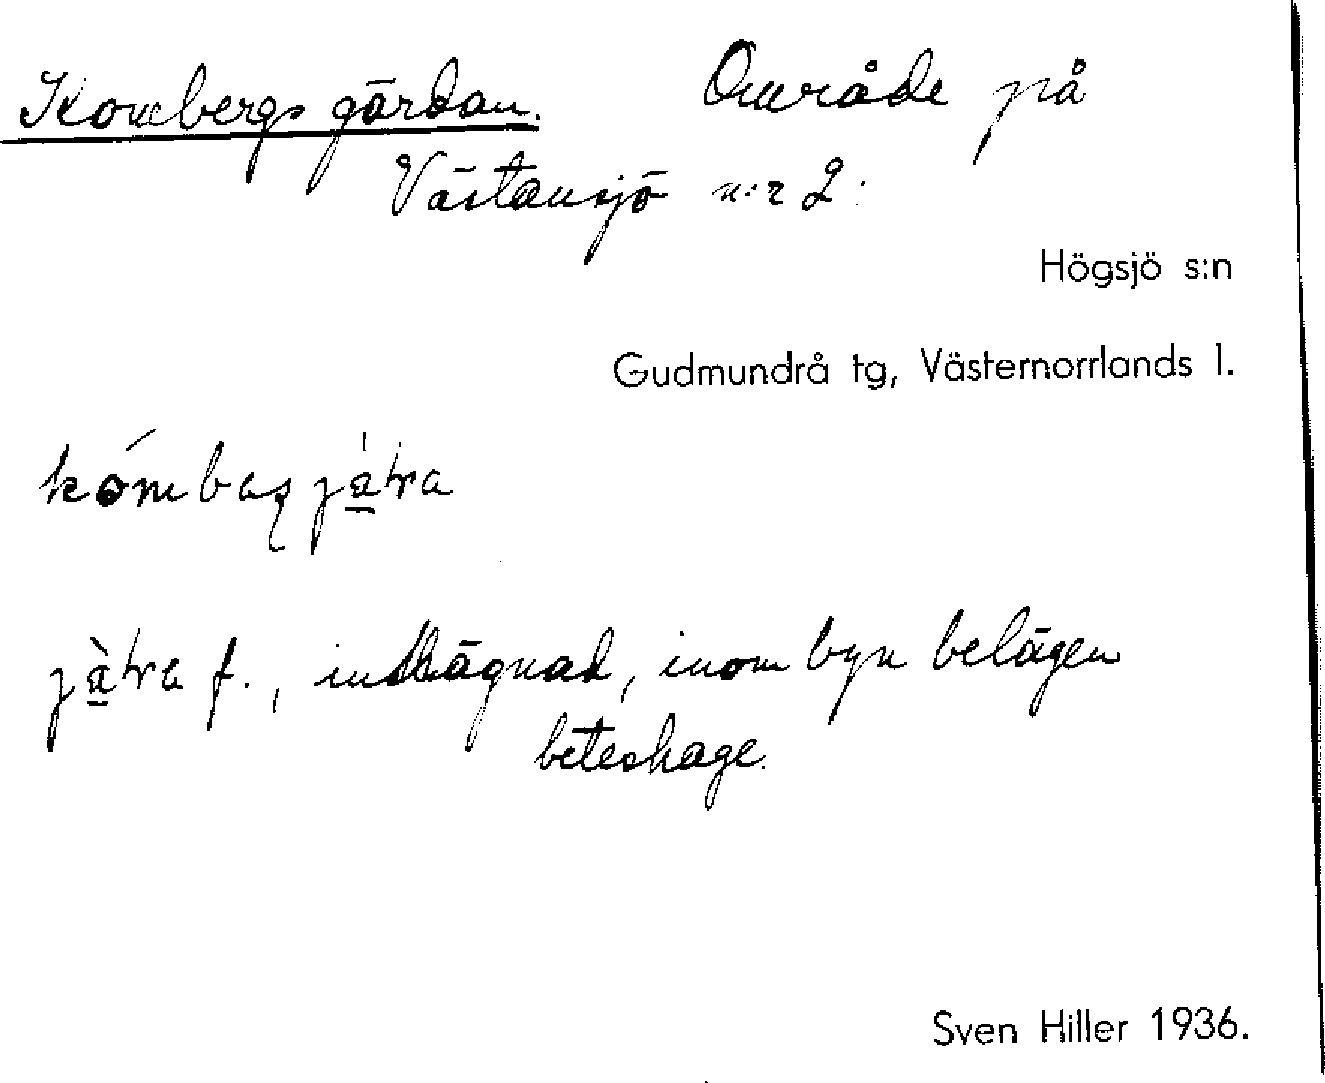 Kornbergs gärdan. Område på
Västansjö n:r 2.
Högsjö s:n
Gudmundrå tg, Västernorrlands l.
f., inhägnad, inom byn belägen
beteshage.
Sven Hiller 1936.